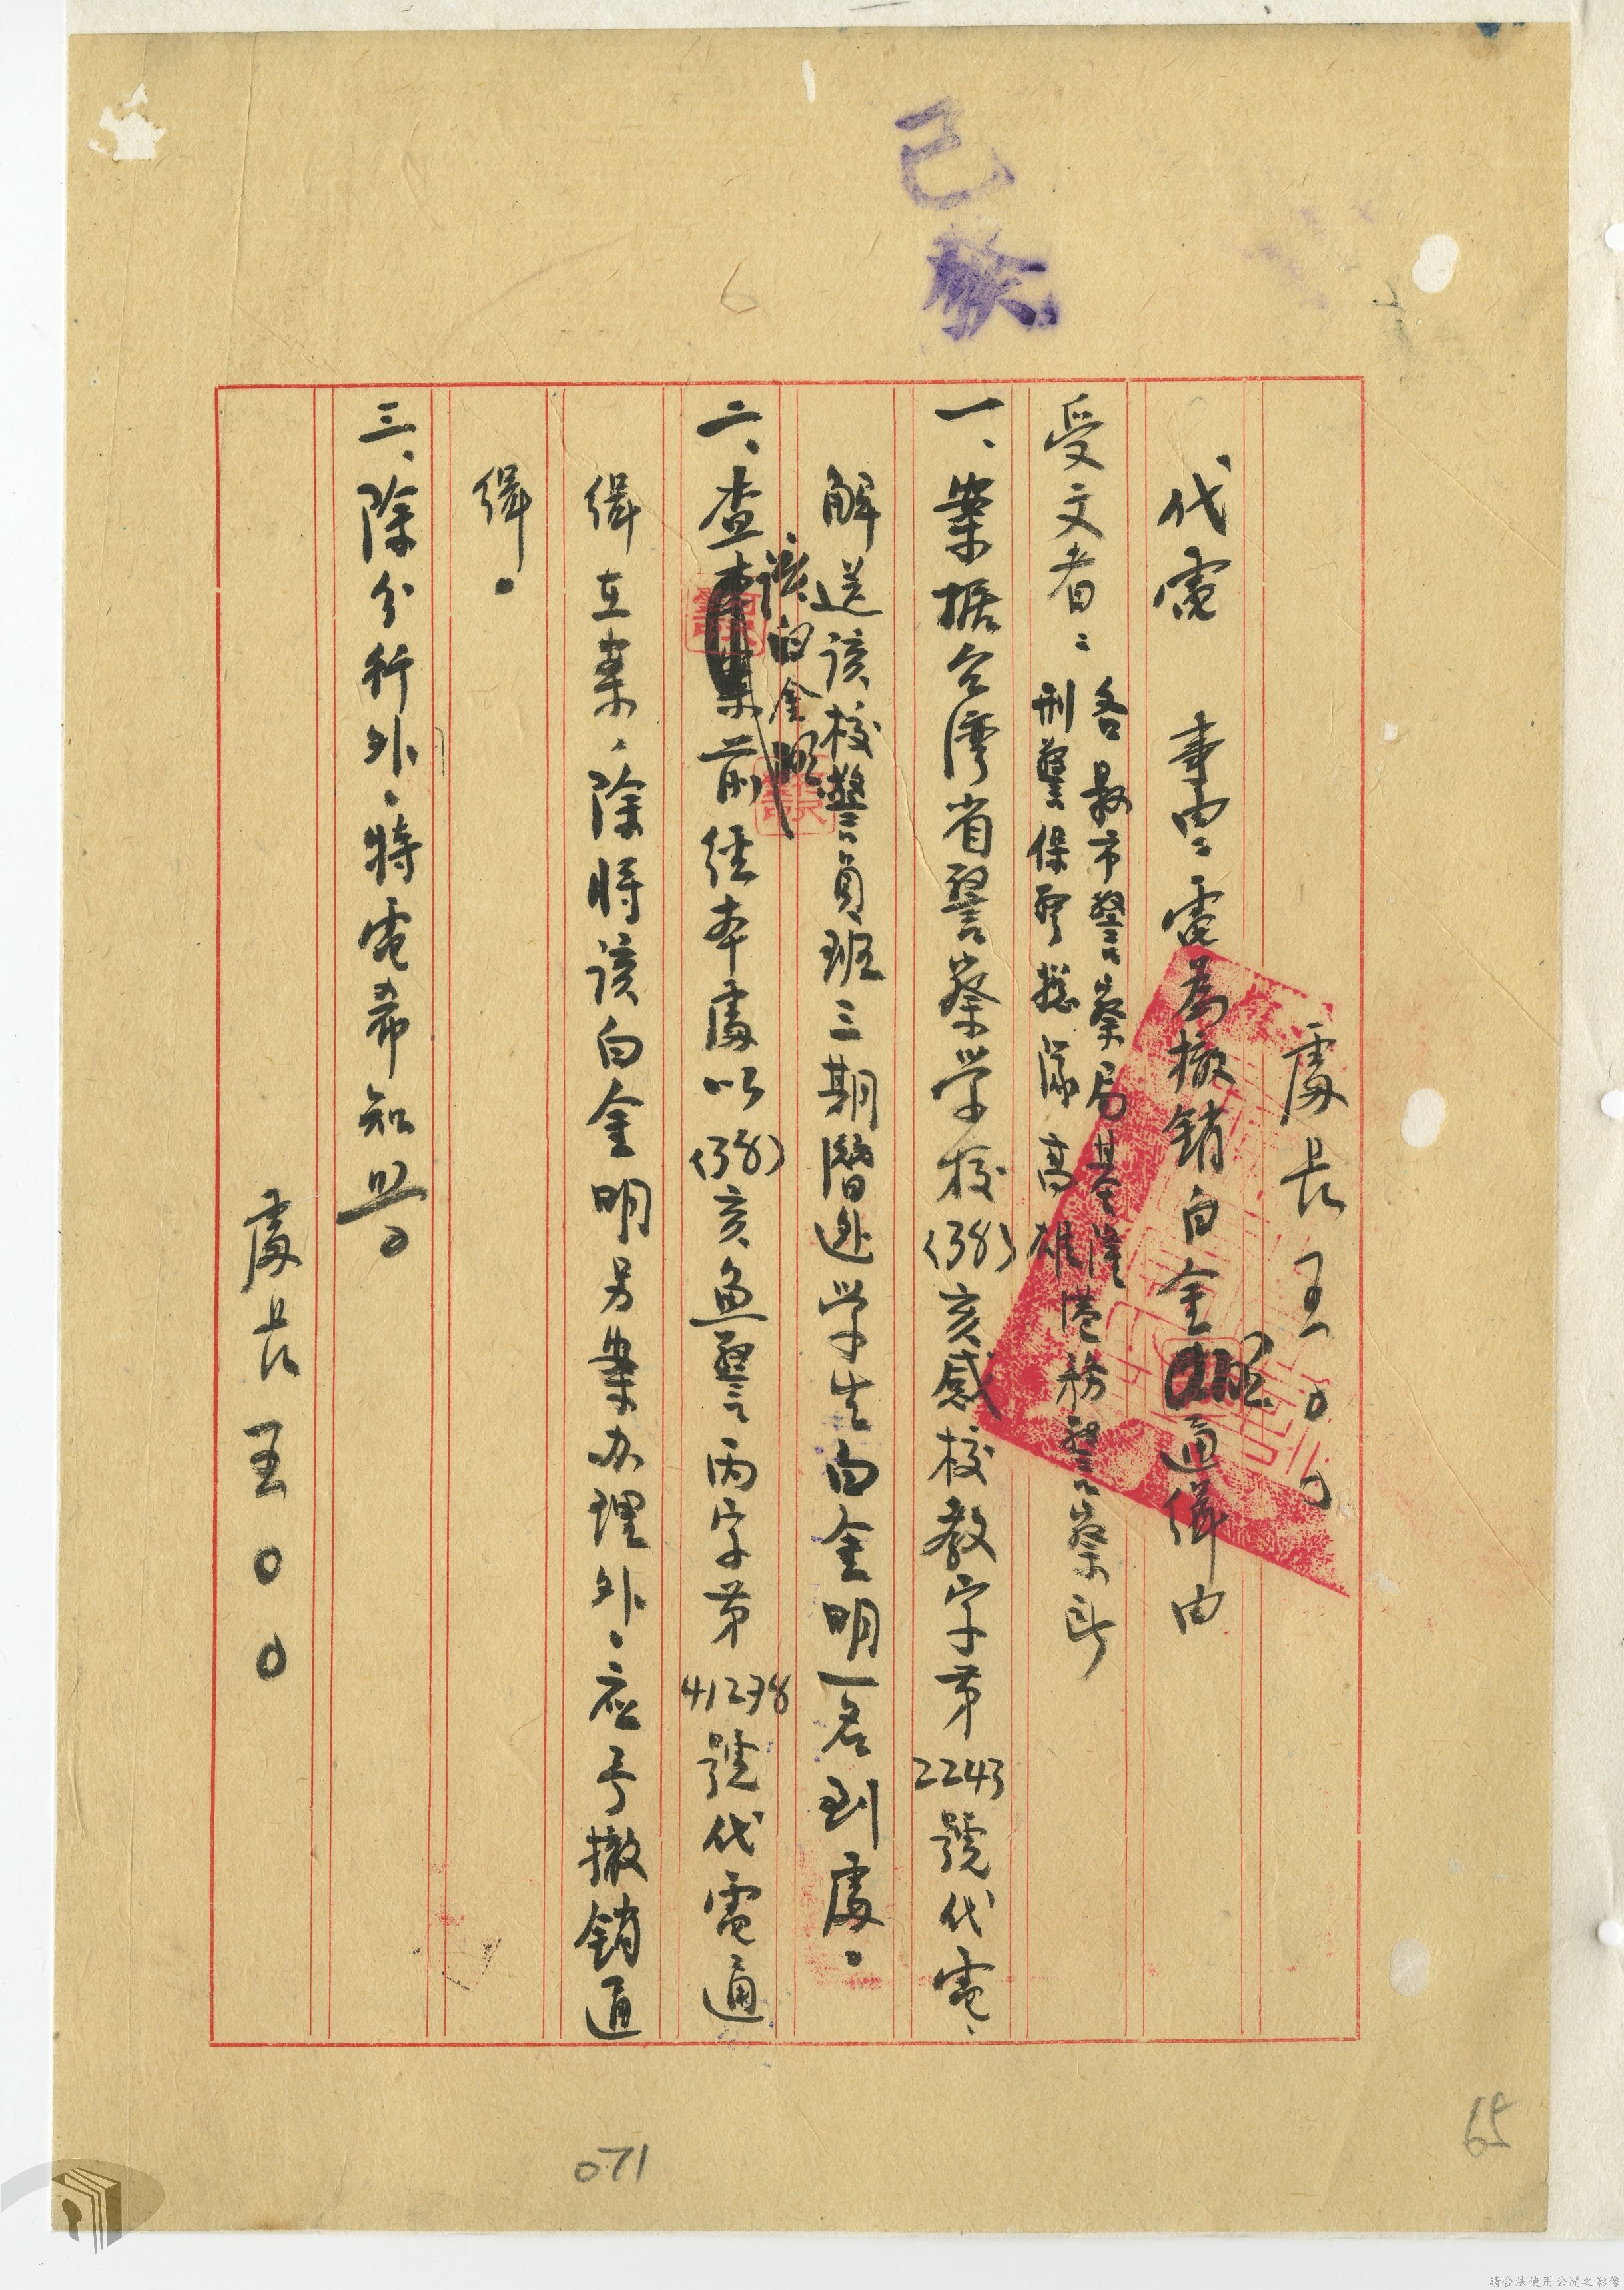 已發
處長王〇〇
代電 事由:電為撤銷白金明通緝由
受文者:各縣市警察局基隆
刑警保警總隊高雄港務警察所
一、案据台灣省警察学校(38)亥感校教字第2243號代電、
解送該校警員班三期潛逃学生白金明一名到處。
該白金明
二、查本案前經本處以(38)亥魚警丙字第41238號代電通
緝在案、除將該白金明另案办理外、应予撤銷通
緝。
三、除分行外、特電希知照。
處長王〇〇
071
65
請合法使用公開之影像